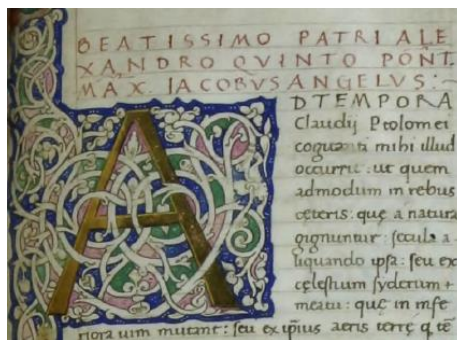 BEATISSIMO PATRI ALE
XANDRO QVINTO PONT.
MAX. IACOBVS ANGELVS:~
A
DTEMPORA
Claudij Ptolomei
cogitanti mihi illud
occurrit: ut quem
admodum in rebus
ceteris: quę a natura
gignuntur: secula a
liquando ipsa: seu ex
cęlestium syderum
meatu: quę in infe
riora uim mutant: seu ex ipsius aeris terrę q tē